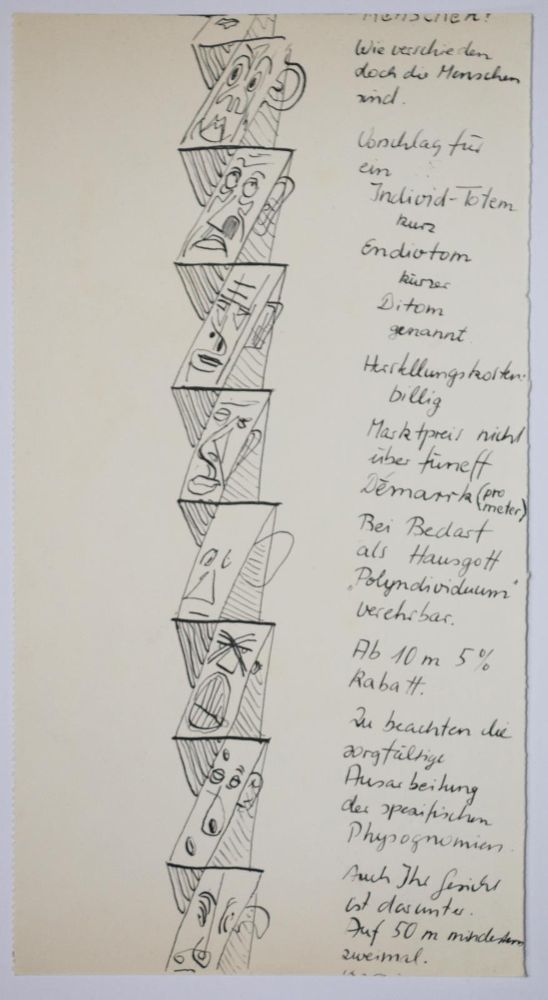 Menschen!
Wie verschieden
doch die Menschen
sind.
Vorschlag für
ein
Individ-Totem
kurz
Endivtom
kürzer
Ditom
genannt.
Herstellungskosten:
billig
Marktpreis nicht
über füneff
Démarrk (pro
meter)
Bei Bedarf
als Hausgott
"Polyndividuum"
verehrbar.
Ab 10 m 5%
Rabatt.
Zu beachten die
sorgfältige
Ausarbeitung
der spezifischen
Physognomien.
Auch Ihr Gesicht
ist darunter.
Auf 50 m mindestens
zweimal.